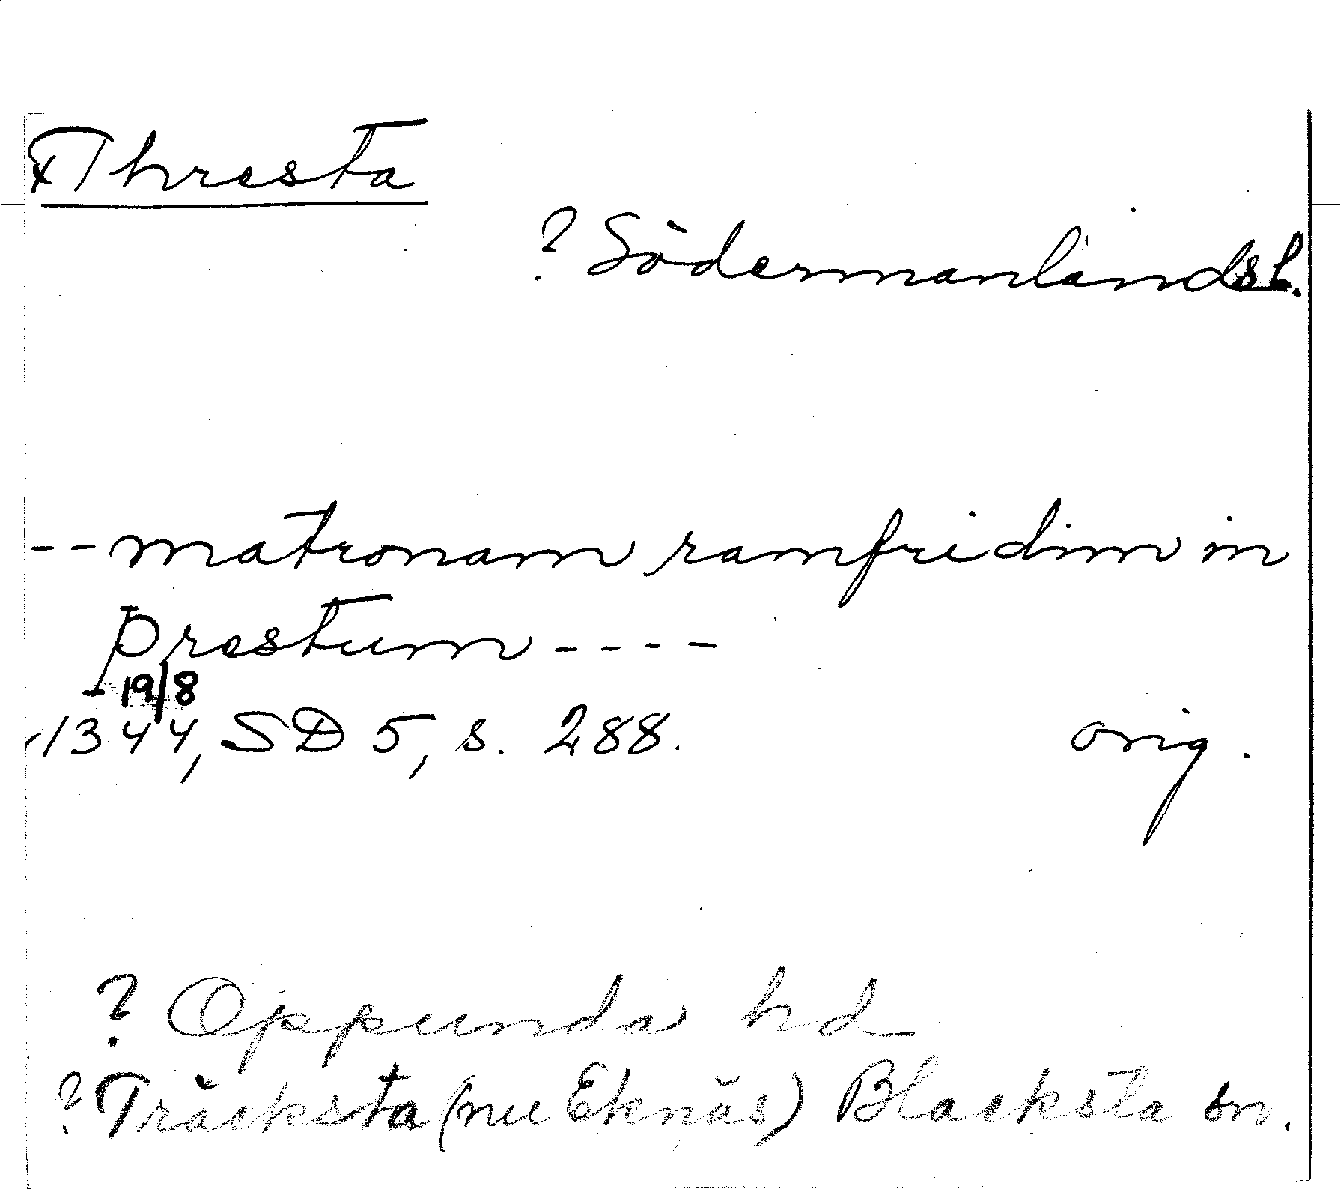 ×Thresta
? Södermanlandsl.
-- matronam ramfridim in
þrestum ----
19/8
1344, SD 5, s. 288. orig.
? Oppunda hd
? Träcksta (nu Eknäs) Blacksta sn.